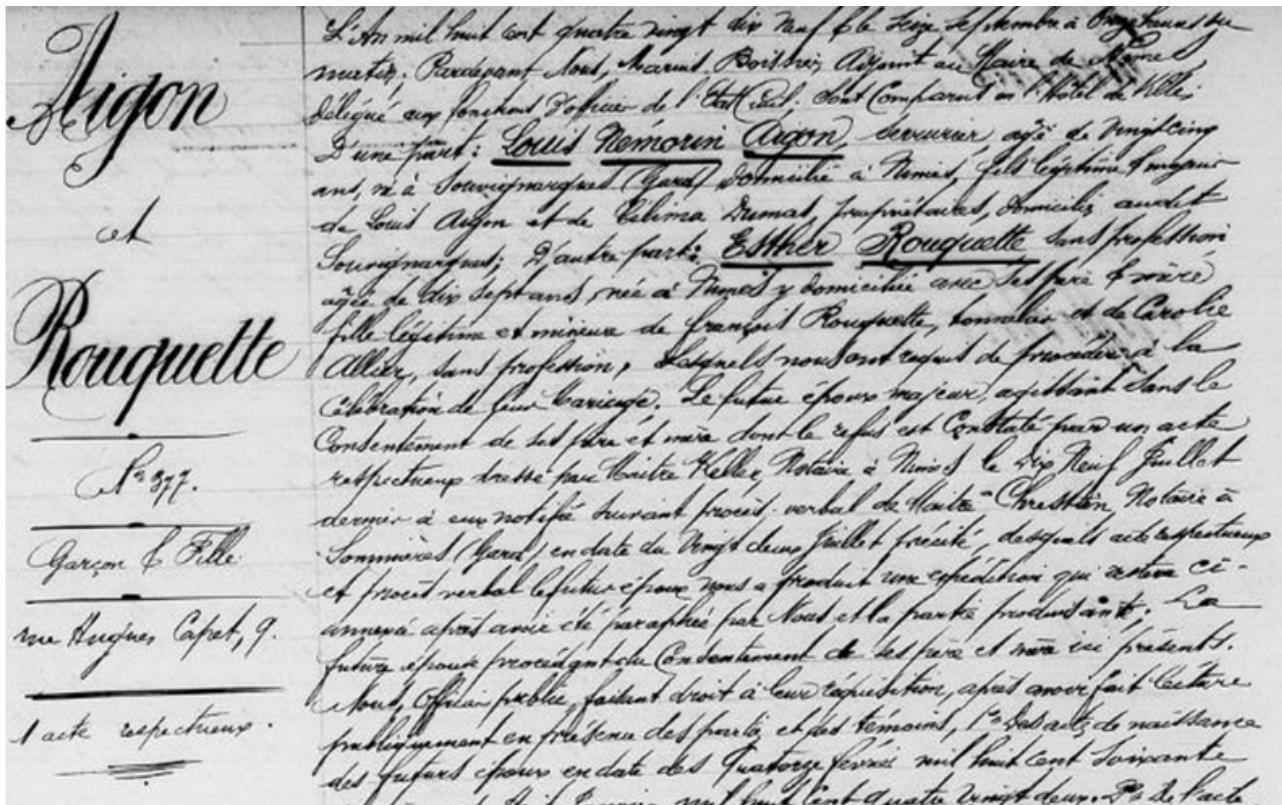 Aigon
et
Rouquette
N° 377.
Garçon & Fille
rue Hugues Capet, 9.
1 acte respectueux.
L'An mil huit cent quatre vingt dix neuf & le seize septembre à onze heures du
matin. Pardevant Nous, Marius Boissier, Adjoint au Maire de Nimes
délégué aux fonctions d'officier de l'Etat Civil; sont Comparus en l'hôtel de Ville;
D'une part: Louis Némorin Aigon, serrurier, agé de vingt cinq
ans, né à Souvignargues (Gard) domicilié à Nimes, fils légitime & majeur
de Louis Aigon et de Célima Dumas, propriétaires, domiciliés audit
Souvignargues; D'autre part: Esther Rouquette sans profession
agée de dix sept ans, née à Nimes y domiciliée avec ses père & mère
fille légitime et mineure de françois Rouquette, tonnelier et de Carolie
Allier, sans profession, Lesquels nous ont requis de procéder à la
Célébration de leur Mariage. Le futur époux majeur, agissant sans le
Consentement de ses père et mère dont le refus est Constaté par un acte
respectueux dressé par Maitre Keller, Notaire, à Nimes le dix Neuf Juillet
dernier à eux notifié suivant procès-verbal de Maitre Chrestien, Notaire à
Sommières (Gard) en date du Vingt deux Juillet précité, desquels acte respectueux
et procès verbal le futur époux nous a produit une expédition qui restera ci-
annexée après avoir été paraphée par Nous et la partie produisante; La
future épouse procédant du Consentement de ses père et mère ici présents.
Nous, Officier public, faisant droit à leur réquisition, après avoir fait lecture
publiquement en présence des parties et des témoins, 1° Des actes de naissance
des futurs époux en date des Quatorze février mil huit cent soixante
mil huit Cent quatre Vingt deux. 2° de l'acte